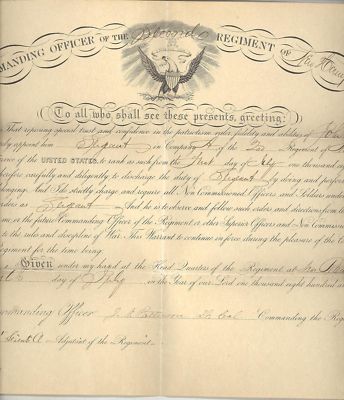 MANDING OFFICER OF THE Second REGIMENT OF
To all who shall see these presents, greeting:
That reposing special trust and confidence in the patriotism, valor, fidelity and abilities of John
ly appoint him Sergeant in Company A of the 2d Regiment of
rvice of the UNITED STATES, to rank as such from the First day of one thousand eig
herefore carefully and diligently to discharge the duty of Sergeant by doing and perform
longing. And I do strictly charge and require all Non Commissioned Officers and Soldiers under
orders as Sergeant And he is to observe and follow such orders and directions from ti
me, or the future Commanding Officer of the Regiment, or other Superior Officers and Non Commiss
to the rules and discipline of War. This Warrant to continue in force during the pleasure of the C
Regiment for the time being.
Given under my hand at the Head Quarters of the Regiment at
day of July in the Year of our Lord one thousand eight hundred a
ommanding Officer Patterson Lt Col Commanding the Reg
Adjutant of the Regiment